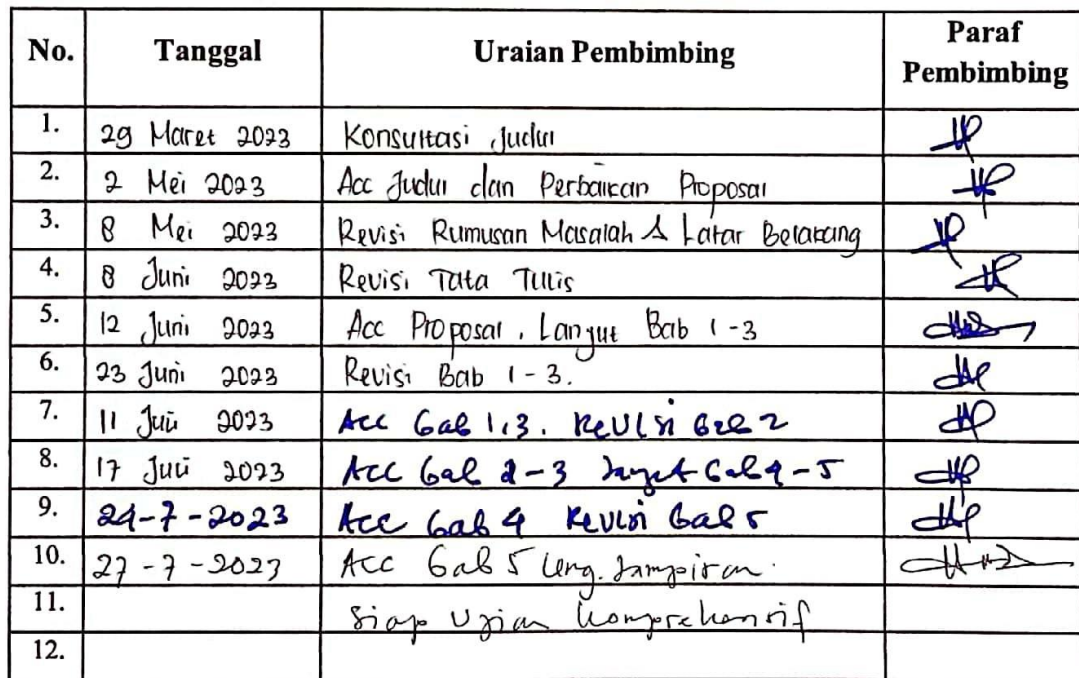 No. Tanggal Uraian Pembimbing Paraf Pembimbing
1. 29 Maret 2023 Konsultasi Judul
2. 2 Mei 2023 Acc Judul dan Perbaikan Proposal
3. 8 Mei 2023 Revisi Rumusan Masalah & Latar Belakang
4. 8 Juni 2023 Revisi Tata Tulis
5. 12 Juni 2023 Acc Proposal, Lanjut Bab 1-3
6. 23 Juni 2023 Revisi Bab 1-3.
7. 11 Juli 2023 Acc Bab 1,3. Revisi Bab 2
8. 17 Juli 2023 Acc Bab 2-3 Lanjut Bab 4-5
9. 24-7-2023 Acc Bab 4 Revisi Bab 5
10. 27-7-2023 Acc Bab 5 leng. Lampiran.
11. Siap Ujian Komprehensif
12.